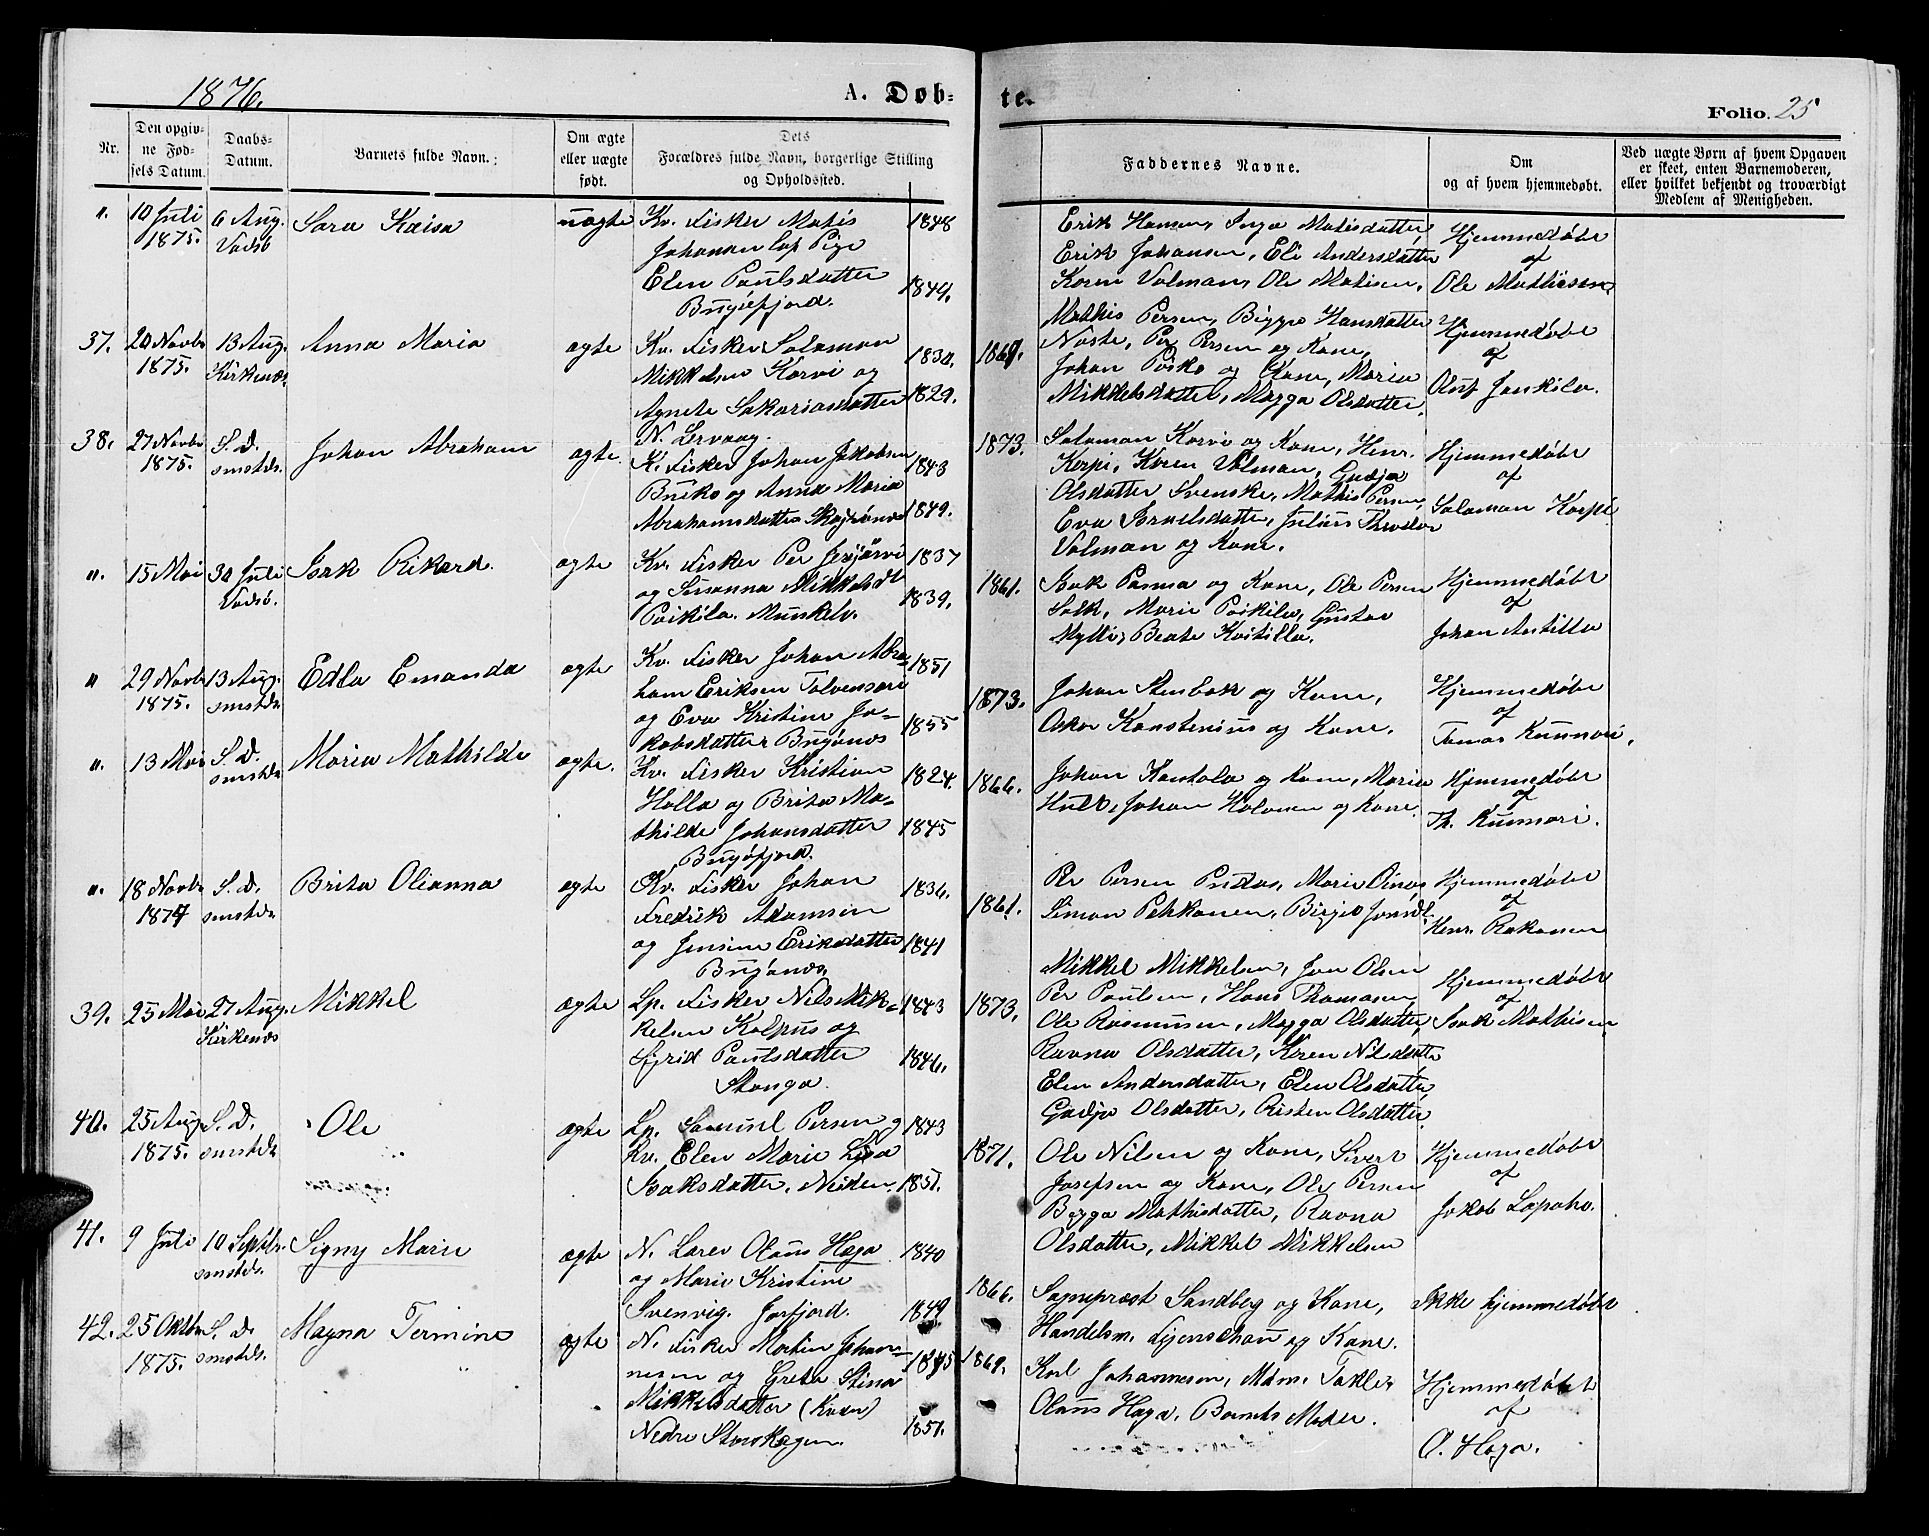 1876.
A. Døb-
te.
Folio. 25
Nr.
Den opgiv-
ne Fød-
sels Datum.
Daabs-
Datum.
Barnets fulde Navn.
Om ægte
eller uægte
født.
Dets
Forældres fulde Navn, borgerlige Stilling
og Opholdssted.
Faddernes Navne.
Om
og af hvem hjemmedøbt.
Ved uægte Børn af hvem Opgaven
er skeet, enten Barnemoderen,
eller hvilket bekjendt og troværdigt
Medlem af Menigheden.
".
10 Juli
1875.
6 Aug.
Vadsø
Sara Kaisa
uægte
Kv. Fisker Matis
Johansen Lap Pige
Elen Paulsdatter
Bugøefjord.
1848
1844.
Erik Hansen, Inga Matisdatter,
Erik Johansen, Eli Andersdatter
Karen Valman, Ole Matisen,
Hjemmedøbt
af
Ole Mathisen
37.
20 Novbr
1875.
13 Aug.
Kirkenæs
Anna Maria
ægte
Kv. Fisker Salamon
Mikkelsen Korvi og
Agnete Sakariasdatter
N. Lervaag.
1830.
1829.
1867.
Mathis Persen, Bigga Hansdatter
Naste, Per Persen og Kone,
Johan Poiko og Kone, Maria
Mikkelsdatter, Magga Olsdatter.
Hjemmedøbt
af
Oluf Jankila.
38.
27 Novbr
1875.
S. d.
smstds.
Johan Abraham
ægte.
K. Fisker Johan Jakobsen
Briko og Anna Maria
Abrahamsdatter Skagønæs
1843
1849.
1873.
Salamon Korvi og Kone, Henr.
Korpi, Karen Valman, Gudja
Olsdatter Svenske, Mathis Persen,
Eva Israelsdatter, Julius Theodor
Valman og Kone.
Hjemmedøbt
af
Salamon Korpi
".
15 Mai
30 Juli
Vadsø.
Isak Rikard.
ægte
Kv. Fisker Per Jesjärvi
og Susanna Mikkelsdt
Poikila. Munkelv.
1837
1839.
1861.
Isak Pasma og Kone, Ole Persen
Salk, Marie Poikila, Gustav
Mylli, Beate Koitilla.
Hjemmedøbt
af
Johan Antilla
"
29 Novbr
1875.
13 Aug.
smstds
Edla Emanda
ægte
Kv. Fisker Johan Abra-
ham Eriksen Tolvensari
og Eva Kristine Ja-
kobsdatter Bugønæs
1851
1855
1873.
Johan Stenbak og Kone,
Oskar Konstenius og Kone.
Hjemmedøbt
af
Tomas Kunnari.
".
13 Mai
S. d.
smstds
Maria Mathilde
ægte.
Kv. Fisker Kristian
Holla og Brita Ma-
thilde Johansdatter
Bugøfjord.
1824.
1845
1866.
Johan Kantola og Kone, Maria
Hult, Johan Halonen og Kone.
Hjemmedøbt
af
Th. Kunnari.
".
18 Novbr
1874
S. d.
smstds
Brita Olianna
ægte
Kv. Fisker Johan
Fredrik Adamsen
og Jensine Eriksdatter
Bugønæs.
1836.
1841
1861.
Per Persen Pudas, Marie Oinas,
Simon Pekkanen, Birgit Jonsdt.
Hjemmedøbt
af
Henr. Rakanen
39.
25 Mai
27 Aug.
Kirkenæs
Mikkel
ægte
Lp. Fisker Nils Mik-
kelsen Kolpus og
Sigrid Paulsdatter
Stanga.
1843
1846.
1873.
Mikkel Mikkelsen, Jon Olsen
Per Paulsen, Hans Thomasen
Ole Rasmussen, Magga Olsdatter,
Ravna Olsdatter, Karen Nilsdatter
Elen Andersdatter, Elen Olsdatter,
Gudja Olsdatter, Risten Olsdatter.
Hjemmedøbt
af
Isak Mathisen
40.
25 Aug.
1875.
S. d.
smstds
Ole
ægte
Lp. Samuel Persen og
Kv. Elen Marie Lisa
Isaksdatter. Neiden.
1843
1851.
1871.
Ole Nilsen og Kone, Sivert
Josefsen og Kone, Ole Persen
Bigga Mathisdatter, Ravna
Olsdatter, Mikkel Mikkelsen
Hjemmedøbt
af
Jakob Lapoho.
41.
9 Juli
10 Septbr.
smstds.
Signy Marie
ægte
N. Lærer Olaus Haga
og Marie Kristine
Svenvig. Jarfjord.
1840
1849.
1866.
Sognepræst Sandberg og Kone,
Handelsm. Figenschau og Kone.
Ikke hjemmedøbt
42.
25 Oktbr
1875.
S. d.
smstds.
Magna Termine
ægte
N. Fisker Martin Johan-
nesen og Greta Stina
Mikkelsdatter (Kvæn)
Nedre Storskogen.
1845
1851.
1869.
Karl Johannesen, Mdm. Takle,
Olaus Haga, Barnets Moder.
Hjemmedøbt
af
O. Haga.